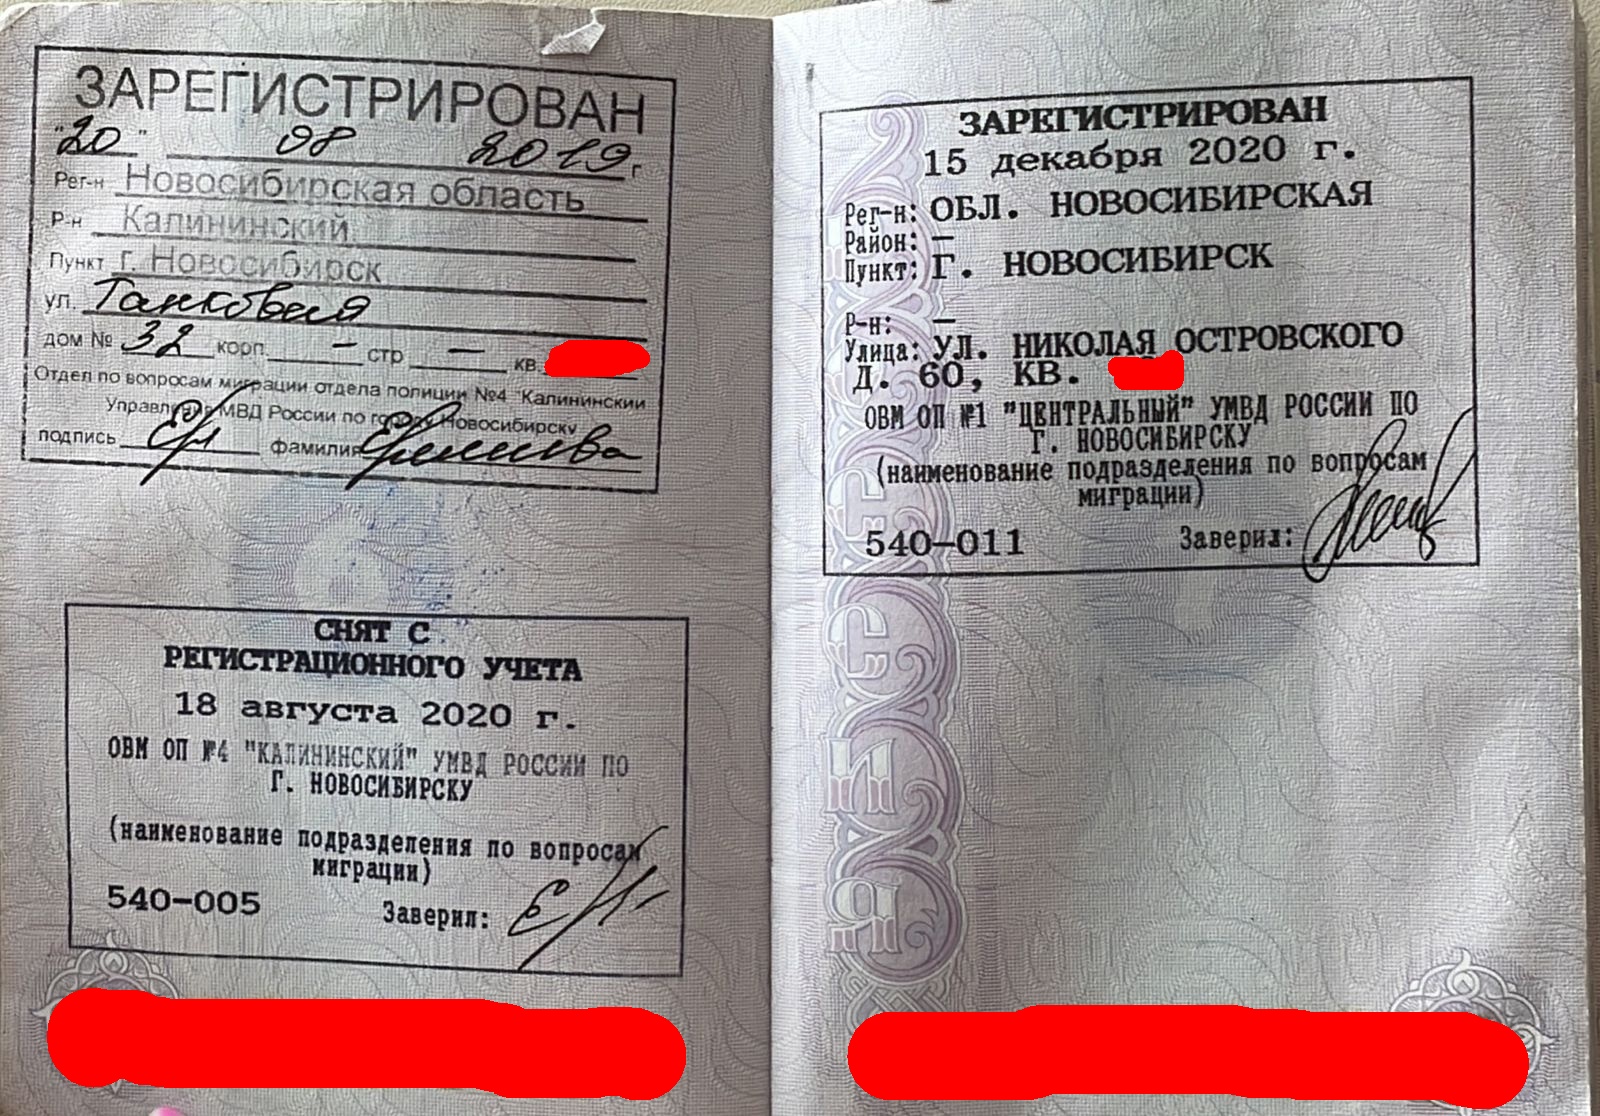 ЗАРЕГИСТРИРОВАН
"20" 08 2019 г
Рег-н Новосибирская область
Р-н Калининский
Пункт г. Новосибирск
ул. Танковая
дом № 32 корп. – стр – кв.
Отдел по вопросам миграции отдела полиции №4 "Калининский
Управления МВД России по городу Новосибирску
подпись фамилия
СНЯТ С
РЕГИСТРАЦИОННОГО УЧЕТА
18 августа 2020 г.
ОВМ ОП №4 "КАЛИНИНСКИЙ" УМВД РОССИИ ПО
Г. НОВОСИБИРСКУ
(наименование подразделения по вопросам
миграции)
540-005 Заверил:
ЗАРЕГИСТРИРОВАН
15 декабря 2020 г.
Рег-н: ОБЛ. НОВОСИБИРСКАЯ
Район: –
Пункт: Г. НОВОСИБИРСК
Р-н: –
Улица: УЛ. НИКОЛАЯ ОСТРОВСКОГО
Д. 60, КВ.
ОВМ ОП №1 "ЦЕНТРАЛЬНЫЙ" УМВД РОССИИ ПО
Г. НОВОСИБИРСКУ
(наименование подразделения по вопросам
миграции)
540-011 Заверил: